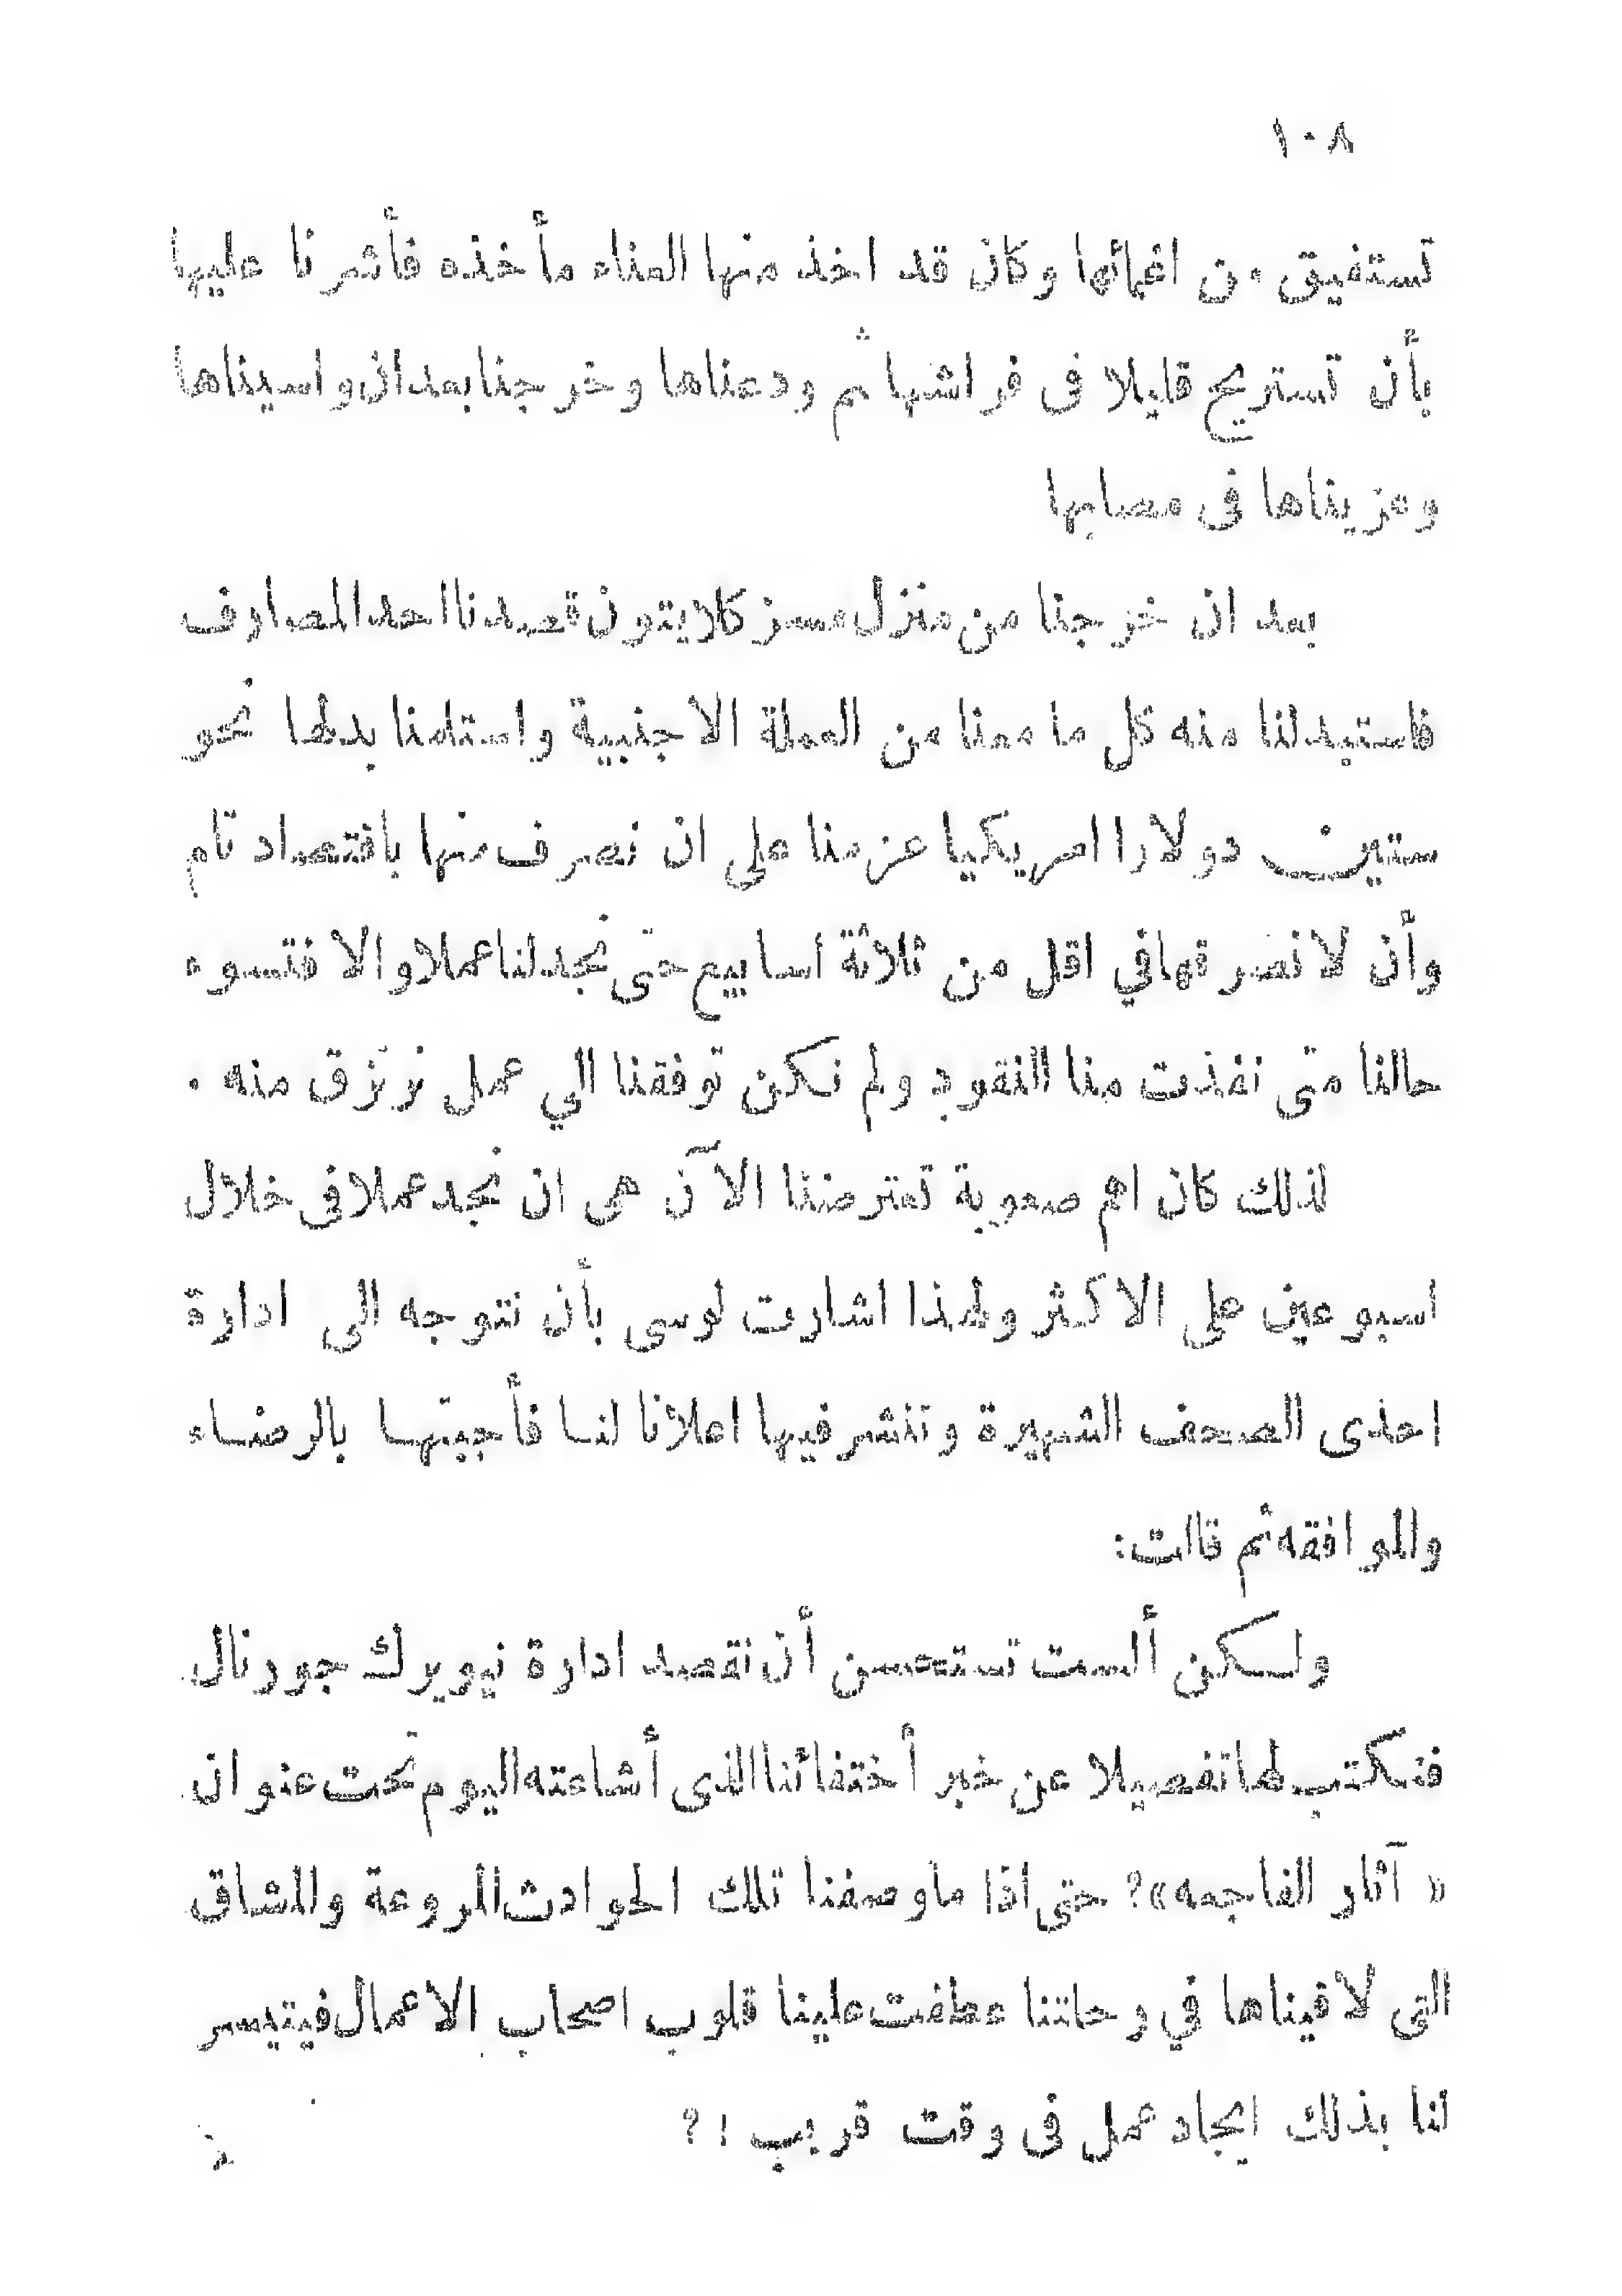 ١٠٨
تستفيق من اغمائها وكان قد اخذ منها العناء مأخذه فأشرنا عليها
بأن تستريح قليلا فى فراشها ثم ودعناها وخرجنا بعد ان واسيناها
وعزيناها فى مصابها
بعد ان خرجنا من منزل مسز كلايتون قصدنا احد المصارف
فاستبدلنا منه كل ما معنا من العملة الاجنبية واستلمنا بدلها نحو
ستين دولارا امريكيا عزمنا على ان نصرف منها باقتصاد تام
وأن لا نصرفها في اقل من ثلاثة اسابيع حتى نجد لنا عملا والا فتسوء
حالنا متى نفذت منا النقود ولم نكن توفقنا الي عمل نرتزق منه .
لذلك كان اهم صعوبة تعترضنا الآن هى ان نجد عملا فى خلال
اسبوعين على الاكثر ولهذا اشارت لوسى بأن نتوجه الى ادارة
احدى الصحف الشهيرة وننشر فيها اعلانا لنا فأجبتها بالرضاء
والموافقه ثم قالت:
ولكن ألست تستحسن أن نقصد ادارة نيويرك جورنال
فنكتب لها تفصيلا عن خبر أختفائنا الذى أشاعته اليوم تحت عنوان
« آثار الفاجعه »؟ حتى اذا ما وصفنا تلك الحوادث المروعة والمشاق
التى لاقيناها في رحلتنا عطفت علينا قلوب اصحاب الاعمال فيتيسر
لنا بذلك ايجاد عمل فى وقت قريب ! ؟